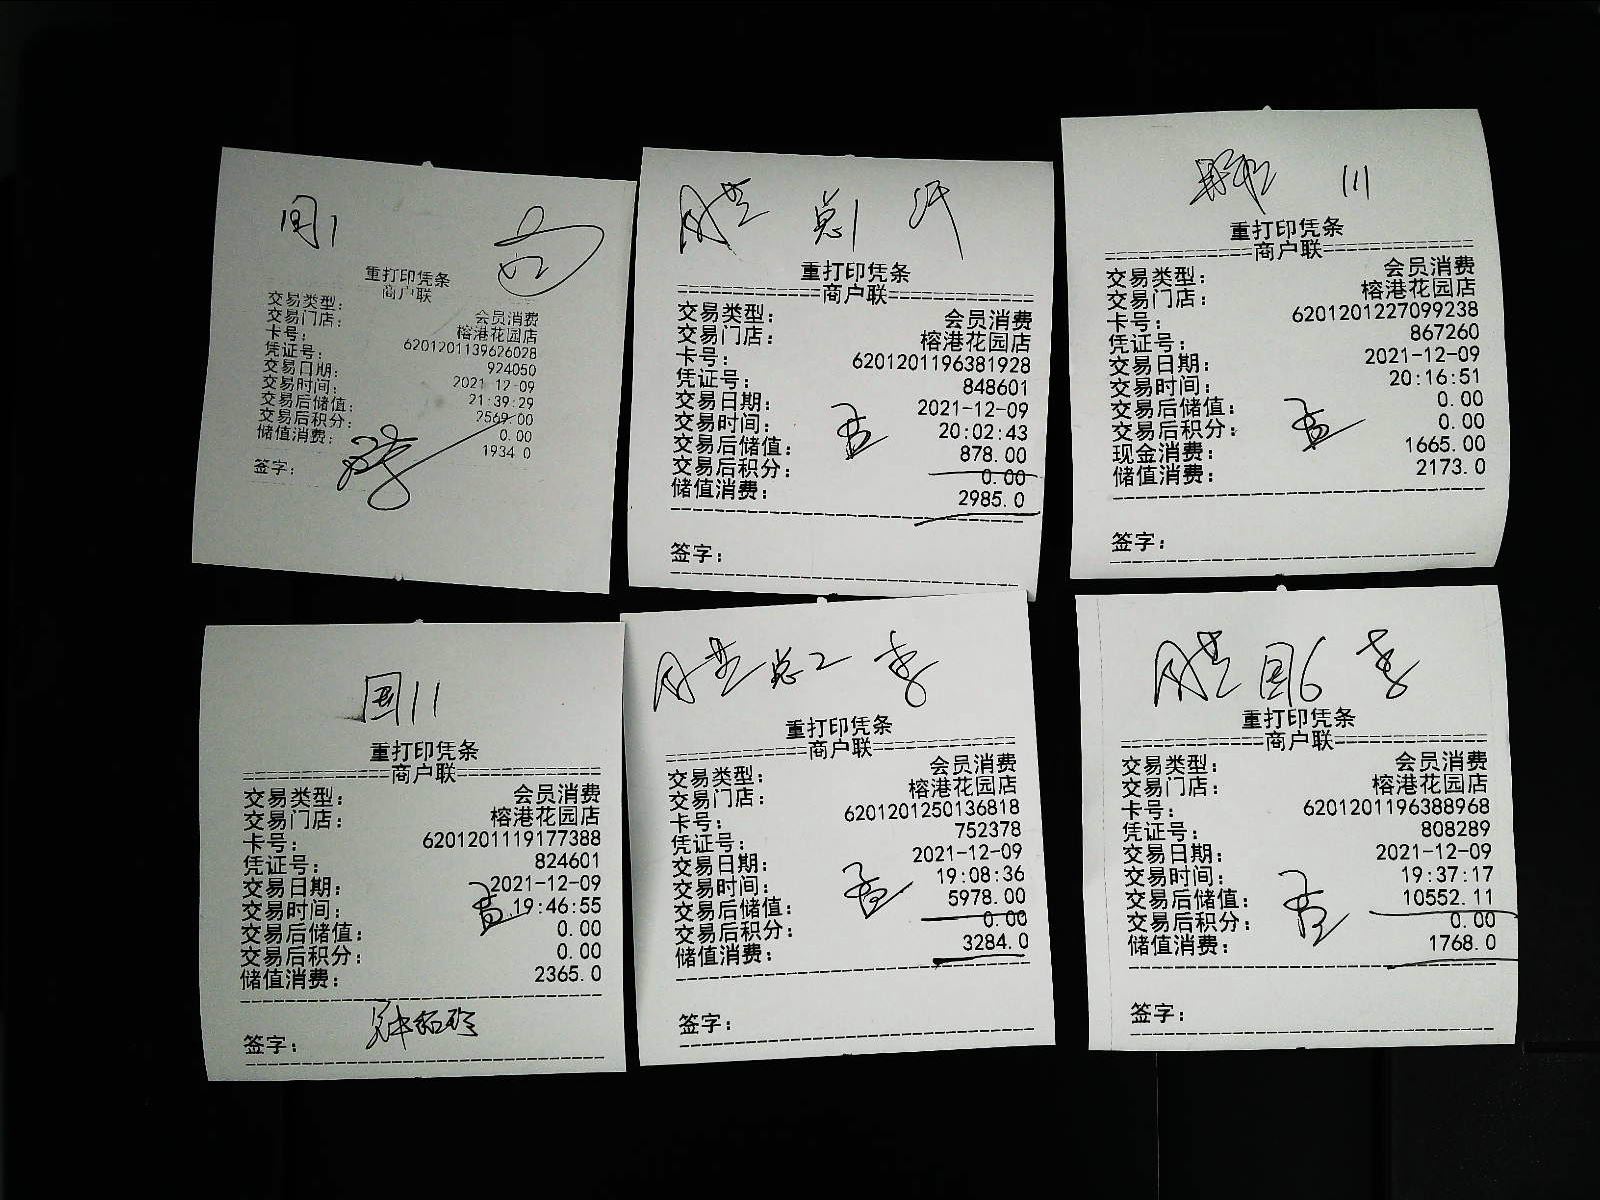 重打印凭条
商户联
交易类型： 会员消费
交易门店： 榕港花园店
卡号： 6201201139626028
凭证号： 924050
交易日期： 2021-12-09
交易时间： 21:39:29
交易后储值： 2569.00
交易后积分： 0.00
储值消费： 1934.0
签字：
总1
重打印凭条
商户联
交易类型： 会员消费
交易门店： 榕港花园店
卡号： 6201201196381928
凭证号： 848601
交易日期： 2021-12-09
交易时间： 20:02:43
交易后储值： 878.00
交易后积分： 0.00
储值消费： 2985.0
签字：
111
重打印凭条
商户联
交易类型： 会员消费
交易门店： 榕港花园店
卡号： 6201201227099238
凭证号： 867260
交易日期： 2021-12-09
交易时间： 20:16:51
交易后储值： 0.00
交易后积分： 0.00
现金消费： 1665.00
储值消费： 2173.0
签字：
国11
重打印凭条
商户联
交易类型： 会员消费
交易门店： 榕港花园店
卡号： 6201201119177388
凭证号： 824601
交易日期： 2021-12-09
交易时间： 19:46:55
交易后储值： 0.00
交易后积分： 0.00
储值消费： 2365.0
签字：
总2 李
重打印凭条
商户联
交易类型： 会员消费
交易门店： 榕港花园店
卡号： 6201201250136818
凭证号： 752378
交易日期： 2021-12-09
交易时间： 19:08:36
交易后储值： 5978.00
交易后积分： 0.00
储值消费： 3284.0
签字：
国6 李
重打印凭条
商户联
交易类型： 会员消费
交易门店： 榕港花园店
卡号： 6201201196388968
凭证号： 808289
交易日期： 2021-12-09
交易时间： 19:37:17
交易后储值： 10552.11
交易后积分： 0.00
储值消费： 1768.0
签字：